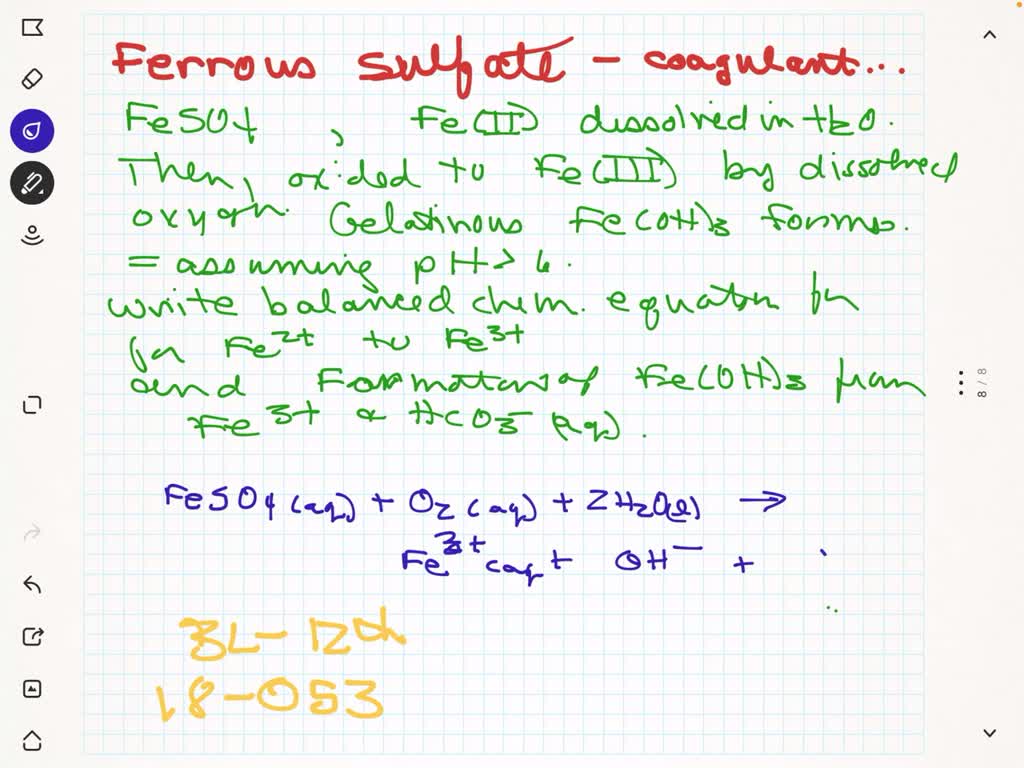 Ferrous sulfate - coagulant...
FeSO4 , Fe(II) dissolved in H2O.
Then, oxided to Fe(III) by dissolved
oxygn. Gelatinous Fe(OH)3 forms.
= assuming pH > 6.
write balanced chem. equaton for
for Fe2+ to Fe3+
and Formation of Fe(OH)3 from
Fe3+ & HCO3- (aq).
FeSO4 (aq) + O2 (aq) + 2H2O(l) →
Fe3+ (aq) + OH- +
BL-12th
18-053
8/8